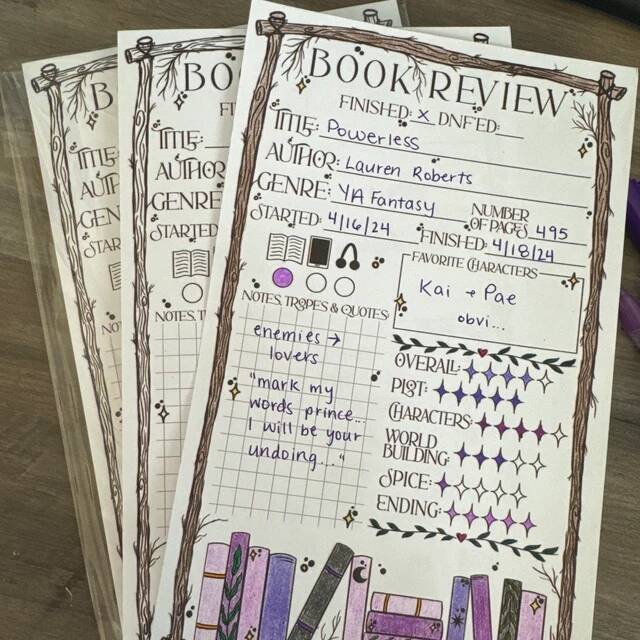 BOOK REVIEW
FINISHED: X DNF'ED:
TITLE: Powerless
AUTHOR: Lauren Roberts
GENRE: YA Fantasy
NUMBER
OF PAGES 495
STARTED: 4/16/24
FINISHED: 4/18/24
FAVORITE CHARACTERS
Kai + Pae
obvi...
NOTES, TROPES & QUOTES:
enemies →
lovers
"mark my
words prince...
I will be your
undoing..."
OVERALL:
PLOT:
CHARACTERS:
WORLD
BUILDING:
SPICE:
ENDING:
BO
FI
TITLE:
AUTHOR
GENRE
STARTED
NOTES, T
B
TITLE
AUT
GEN
STAR
NO